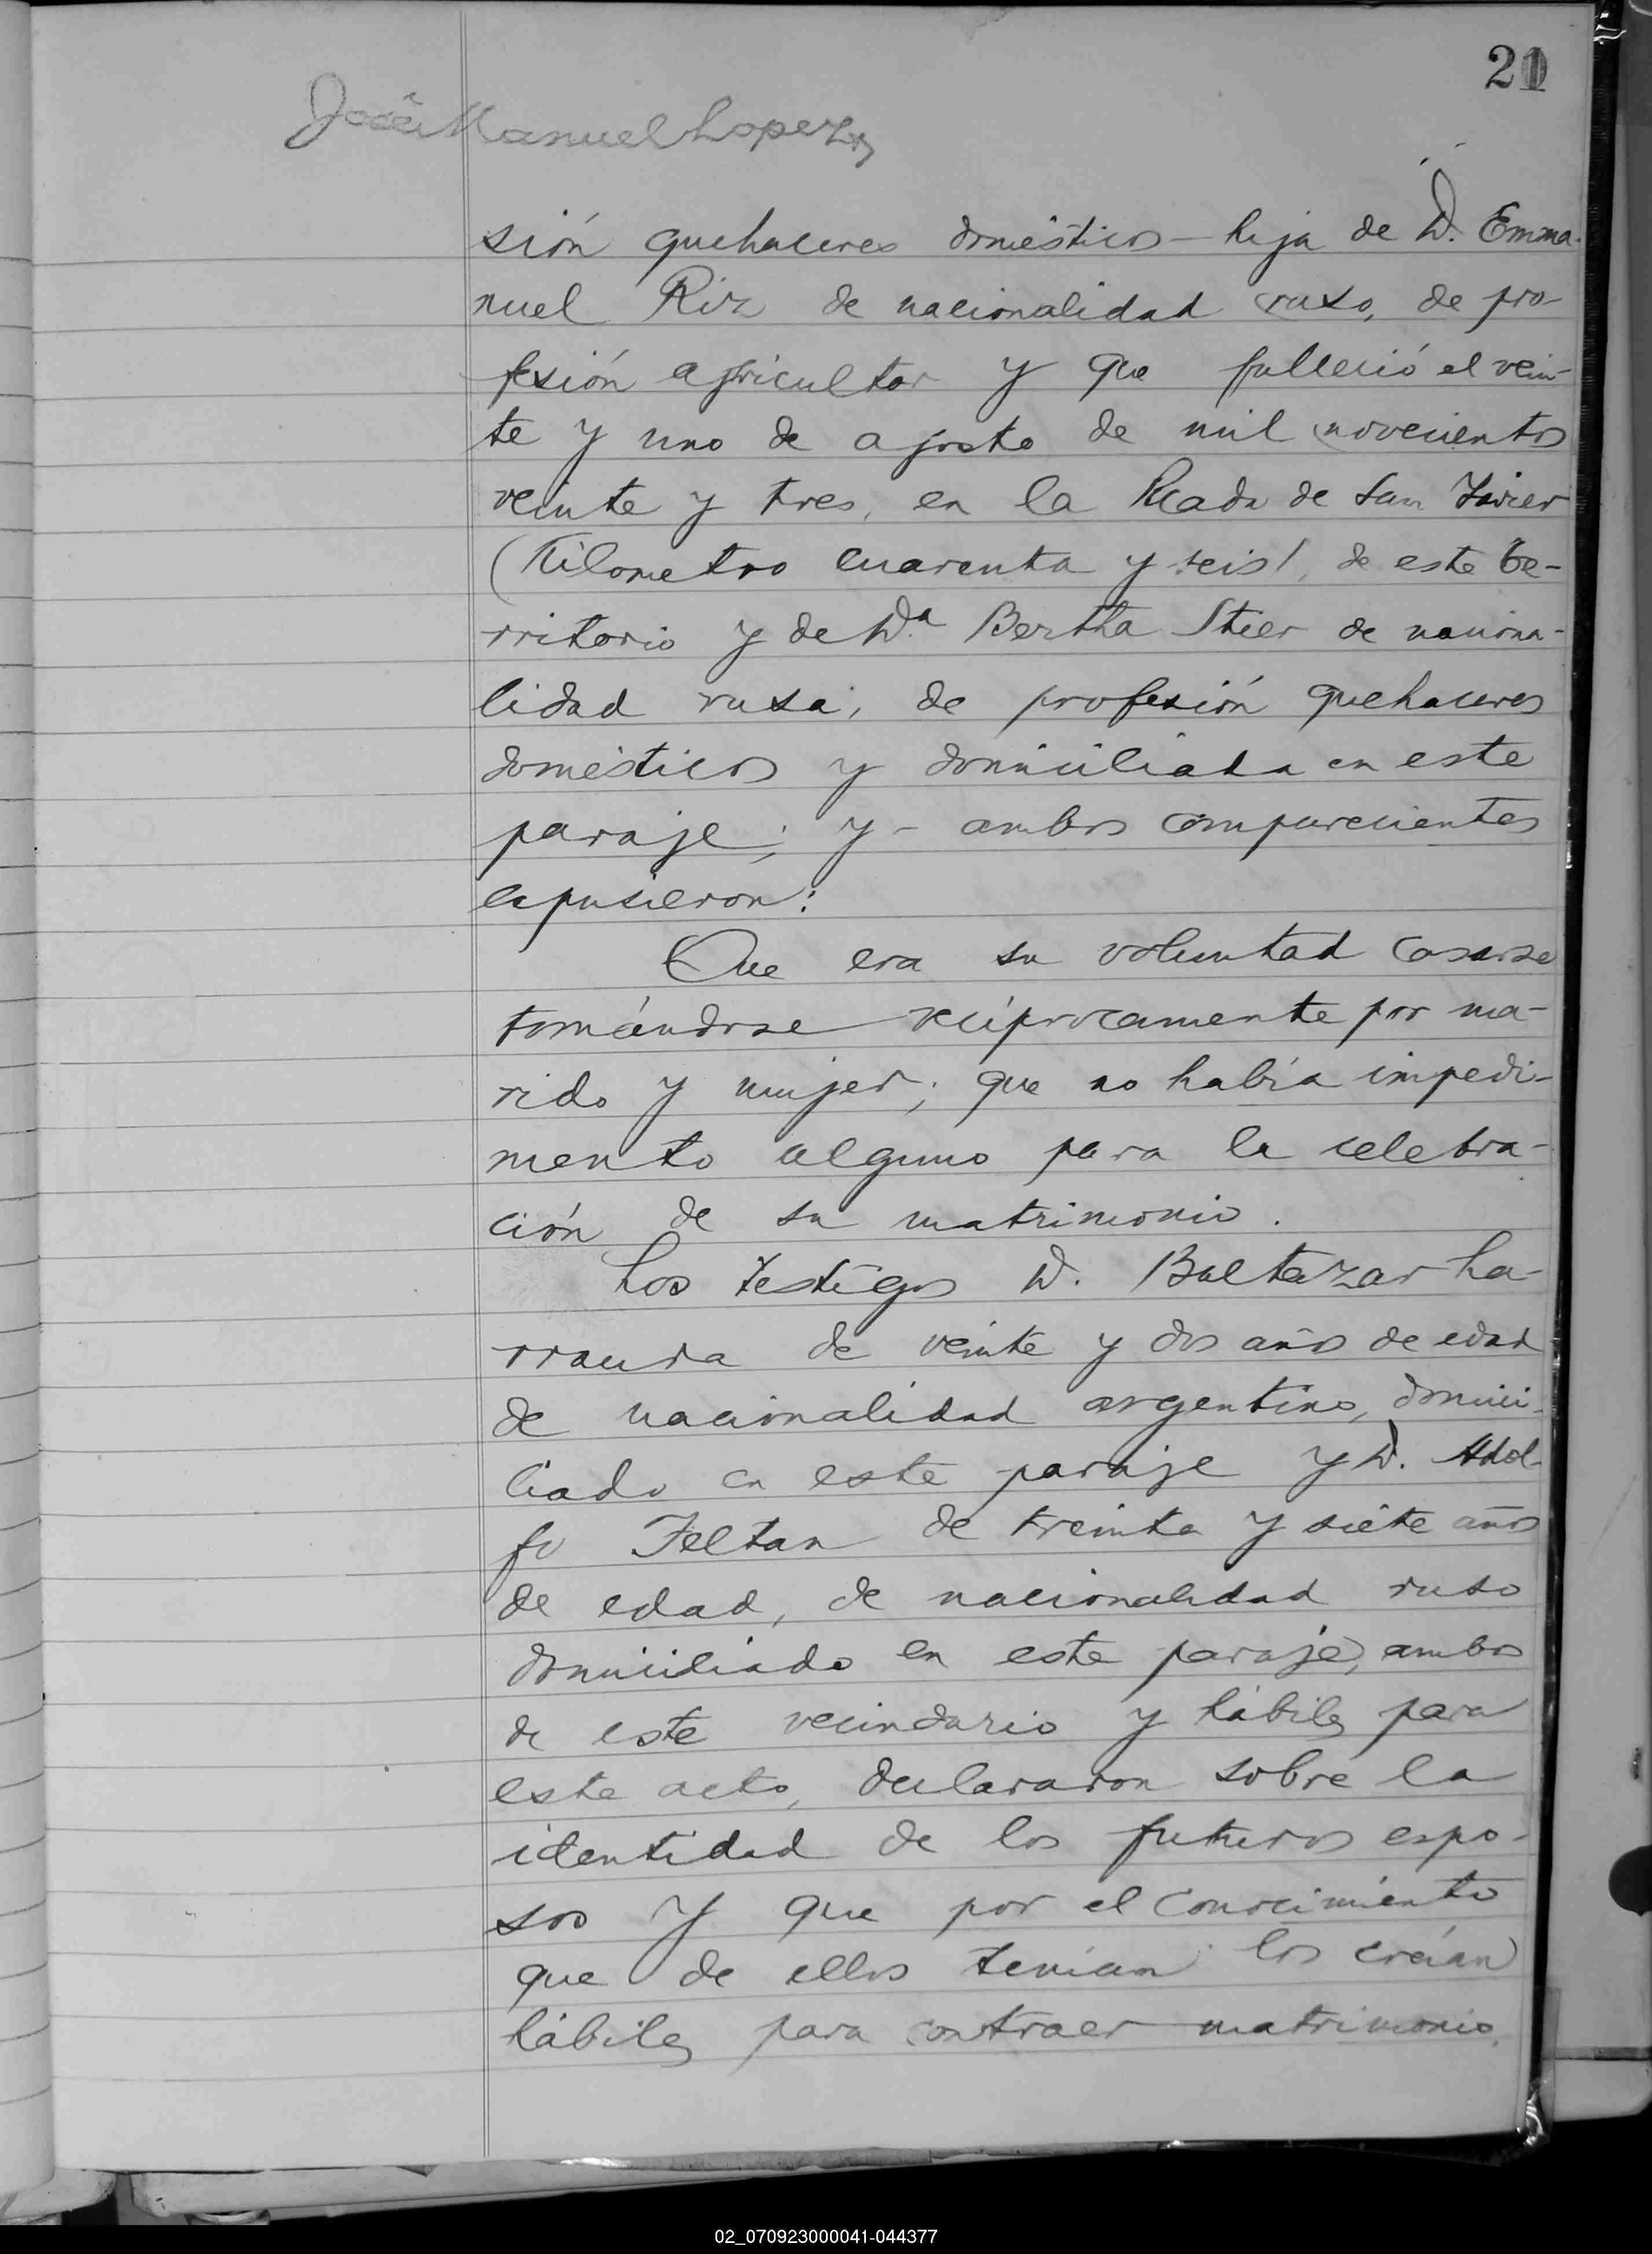 21
José Manuel Lopez
sión quehaceres domésticos – hija de D. Emma-
nuel Rir de nacionalidad ruso, de pro-
fesión agricultor y que falleció el vein-
te y uno de agosto de mil novecientos
veinte y tres, en la Picada de San Javier
(Kilometro cuarenta y seis), de este te-
rritorio y de Da. Bertha Stier de naciona-
lidad rusa, de profesión quehaceres
domésticos y domiciliada en este
paraje; y – ambos comparecientes
expusieron:
Que era su voluntad casarse
tomándose recíprocamente por ma-
rido y mujer; que no había impedi-
mento alguno para la celebra-
ción de su matrimonio.
Los testigos D. Baltazar La-
rraura de veinte y dos años de edad
de nacionalidad argentino, domici-
liado en este paraje y D. Adol-
fo Feltan de treinta y siete años
de edad, de nacionalidad ruso
domiciliado en este paraje, ambos
de este vecindario y hábiles para
este acto, declararon sobre la
identidad de los futuros espo-
sos y que por el conocimiento
que de ellos tenían los creían
hábiles para contraer matrimonio.
02_070923000041-044377